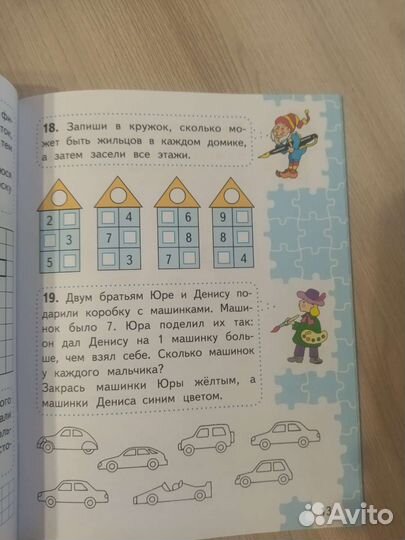 фи-
ток,
тем
18. Запиши в кружок, сколько мо-
жет быть жильцов в каждом домике,
а затем засели все этажи.
2 4 6 9
3 7 8 8
5 3 7 4
19. Двум братьям Юре и Денису по-
дарили коробку с машинками. Маши-
нок было 7. Юра поделил их так:
он дал Денису на 1 машинку боль-
ше, чем взял себе. Сколько машинок
у каждого мальчика?
Закрась машинки Юры жёлтым, а
машинки Дениса синим цветом.
Avito